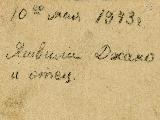 10 го мая 1973 г
Яшвили Джано
и отец.